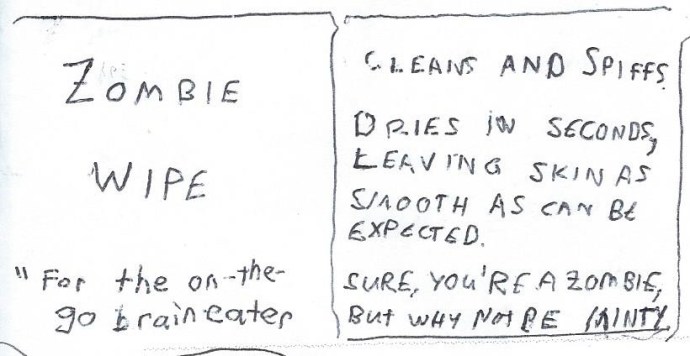 ZOMBIE
WIPE
"For the on-the-
go braineater
CLEANS AND SPIFFS
DRIES IN SECONDS,
LEAVING SKIN AS
SMOOTH AS CAN BE
EXPECTED.
SURE, YOU'RE A ZOMBIE,
BUT WHY NOT BE MINTY